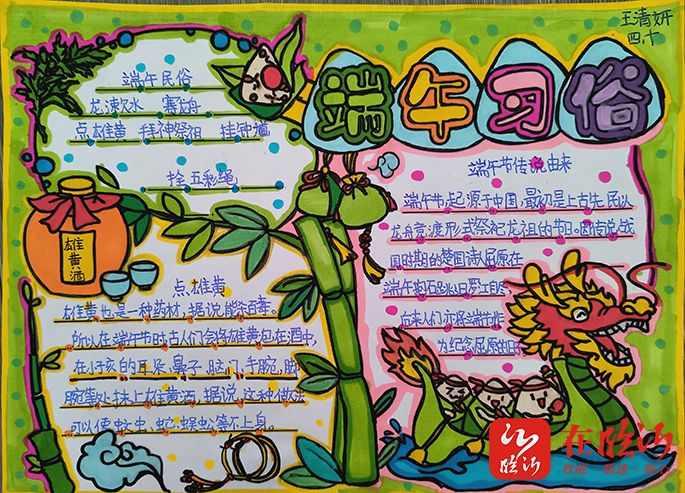 王清妍
四、十
端午习俗
端午民俗
龙渡水 赛龙舟
点雄黄 拜神祭祖 挂钟馗
拴五彩绳
雄黄酒
点雄黄
雄黄也是一种药材,据说能杀百毒。
所以在端午节时古人们会将雄黄包在酒中,
在小孩的耳朵、鼻子、脑门、手腕、脚
腕等处抹上雄黄酒,据说,这种做法
可以使蚊虫、蛇、蜈蚣等不上身。
端午节传说由来
端午节,起源于中国,最初是上古先民以
龙舟竞渡形式祭祀龙祖的节日。因传说战
国时期的楚国诗人屈原在
端午抱石跳汨罗江自
后来人们亦将端午节作
为纪念屈原的日
在临沂
临沂